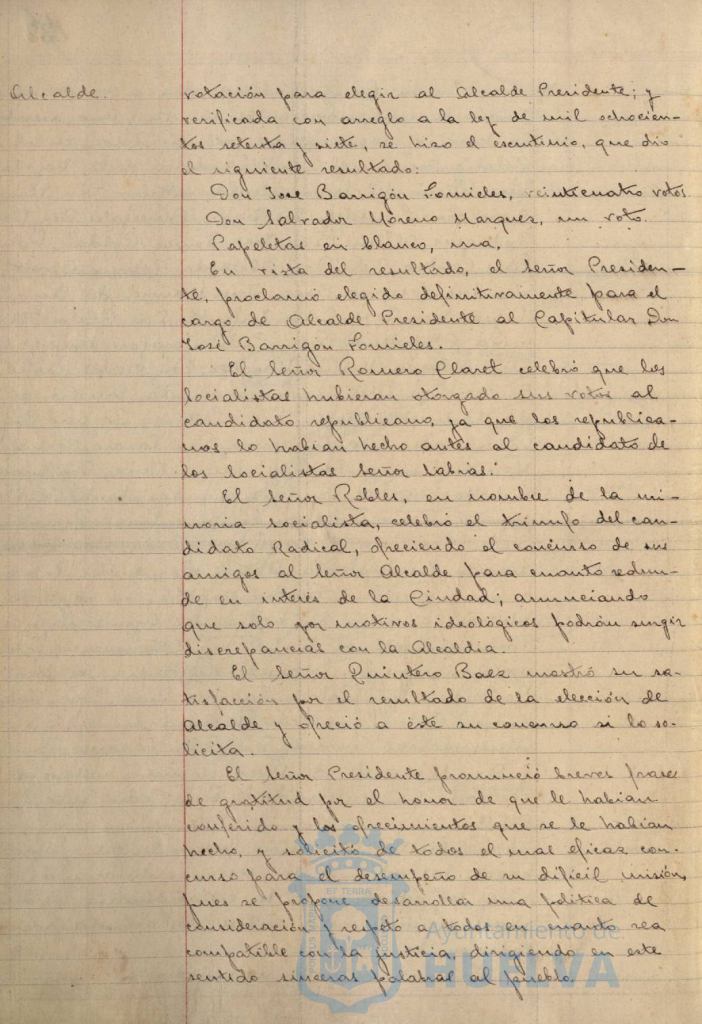 Alcalde.
votación para elegir al Alcalde Presidente; y
verificada con arreglo a la ley de mil ochocien-
tos setenta y siete, se hizo el escrutinio, que dio
el siguiente resultado:
Don José Barrigón Fornieles, veinticuatro votos.
Don Salvador Moreno Marquez, un voto.
Papeletas en blanco, una.
En vista del resultado, el Señor Presiden-
te, proclamó elegido definitivamente para el
cargo de Alcalde Presidente al Capitular Don
José Barrigón Fornieles.
El Señor Romero Claret celebró que los
socialistas hubieran otorgado sus votos al
candidato republicano, ya que los republica-
nos lo habian hecho antes al candidato de
los socialistas Señor Sabrás.
El Señor Robles, en nombre de la mi-
noria socialista, celebró el triunfo del can-
didato Radical, ofreciendo el concurso de sus
amigos al Señor Alcalde para cuanto redun-
de en interés de la Ciudad; anunciando
que solo por motivos ideológicos podrán surgir
discrepancias con la Alcaldia.
El Señor Quintero Baez mostró su sa-
tisfacción por el resultado de la elección de
Alcalde y ofreció a éste su concurso si lo so-
licita.
El Señor Presidente pronunció breves frases
de gratitud por el honor de que le habian
conferido y los ofrecimientos que se le habian
hecho, y solicitó de todos el mas eficaz con-
curso para el desempeño de su dificil misión,
pues se propone desarrollar una politica de
consideración y respeto a todos en cuanto sea
compatible con la justicia, dirigiendo en este
sentido sinceras palabras al pueblo.
Ayuntamiento de
HUELVA